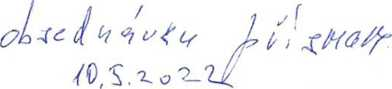 objednávku přijmam
10.5.2022